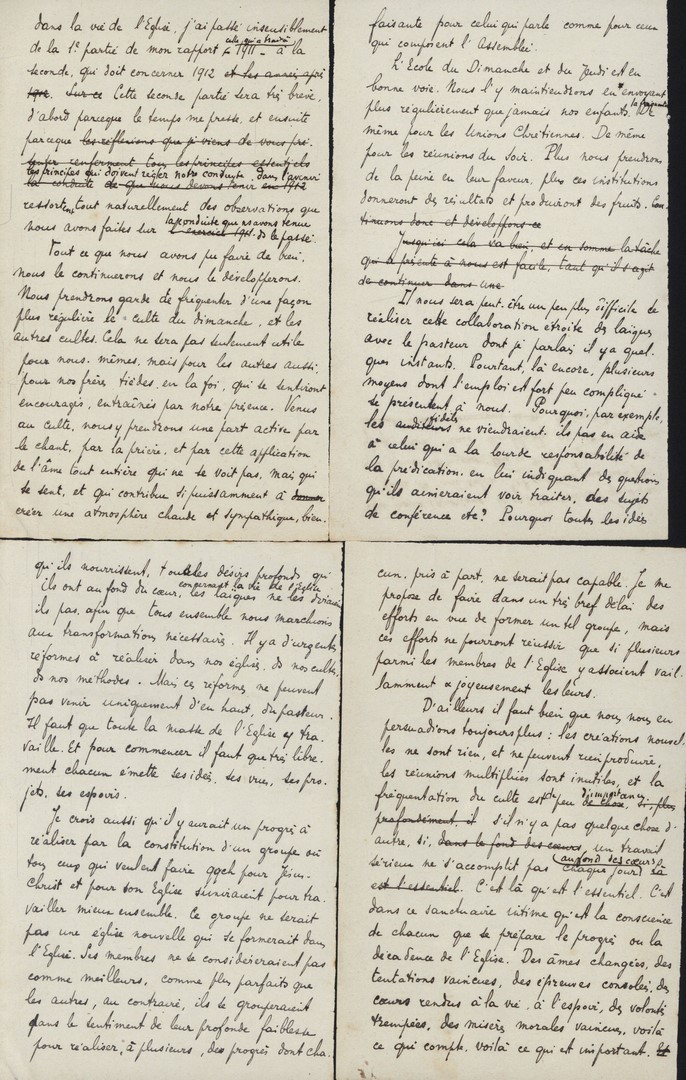 dans la vie de l'Eglise, j'ai passé insensiblement
de la 1e partie de mon rapport celle qui a traité – 1911 – à la
seconde, qui doit concerner 1912 et les années après
1912. Sur ce Cette seconde partie sera très brève,
d'abord parceque le temps me presse, et ensuite
parceque les réflexions que je viens de vous pré-
senter renferment tous les principes essentiels
les principes qui doivent régler notre conduite dans l'avenir
la conduite de que nous devons tenir en 1912
ressortent tout naturellement des observations que
nous avons faites sur la conduite que ns avons tenue l'exercice 1911. ds le passé.
Tout ce que nous avons pu faire de bien,
nous le continuerons et nous le développerons.
Nous prendrons garde de fréquenter d'une façon
plus régulière le culte du dimanche, et les
autres cultes. Cela ne sera pas seulement utile
pour nous-mêmes, mais pour les autres aussi,
pour nos frères tièdes, en la foi, qui se sentiront
encouragés, entraînés par notre présence. Venus
au culte, nous y prendrons une part active par
le chant, par la prière, et par cette application
de l'âme tout entière qui ne se voit pas, mais qui
se sent, et qui contribue si puissamment à donner
créer une atmosphère chaude et sympathique, bien-
faisante pour celui qui parle comme pour ceux
qui composent l'Assemblée.
L'Ecole du Dimanche et du Jeudi est en
bonne voie. Nous l'y maintiendrons en envoyant
plus régulièrement que jamais nos enfants. De
même pour les Unions Chrétiennes. De même
pour les réunions du soir. Plus nous prendrons
de la peine en leur faveur, plus ces institutions
donneront des résultats et produiront des fruits. Con-
tinuons donc et développons ce
Jusqu'ici cela va bien, et en somme la tâche
qui se présente à nous est facile, tant qu'il s'agit
de continuer dans une
Il nous sera peut-être un peu plus difficile de
réaliser cette collaboration étroite des laïques
avec le pasteur dont je parlais il y a quel-
ques instants. Pourtant, là encore, plusieurs
moyens dont l'emploi est fort peu compliqué
se présentent à nous. Pourquoi, par exemple,
les auditeurs fidèles ne viendraient-ils pas en aide
à celui qui a la lourde responsabilité de
la prédication, en lui indiquant des questions
qu'ils aimeraient voir traiter, des sujets
de conférence etc? Pourquoi toutes les idées
qu'ils nourrissent, tous les désirs profonds qui
ils ont au fond du cœur, concernant la vie de l'Eglise les laïques ne les diraient
ils pas, afin que tous ensemble nous marchions
aux transformations nécessaires. Il y a d'urgentes
réformes à réaliser dans nos églises, ds nos cultes,
ds nos méthodes. Mais ces réformes ne peuvent
pas venir uniquement d'en haut, du pasteur.
Il faut que toute la masse de l'Eglise y tra-
vaille. Et pour commencer il faut que très libre-
ment chacun émette ses idées, ses vues, ses pro-
jets, ses espoirs.
Je crois aussi qu'il y aurait un progrès à
réaliser par la constitution d'un groupe où
tous ceux qui veulent faire qqch pour Jésus-
Christ et pour son Eglise s'uniraient pour tra-
vailler mieux ensemble. Ce groupe ne serait
pas une église nouvelle qui se formerait dans
l'Eglise. Ses membres ne se considéreraient pas
comme meilleurs, comme plus parfaits que
les autres, au contraire, ils se grouperaient
dans le sentiment de leur profonde faiblesse
pour réaliser, à plusieurs, des progrès dont cha-
cun, pris à part, ne serait pas capable. Je me
propose de faire dans un très bref délai des
efforts en vue de former un tel groupe, mais
ces efforts ne pourront réussir que si plusieurs
parmi les membres de l'Eglise y associent vail-
lamment & joyeusement les leurs.
D'ailleurs il faut bien que nous nous en
persuadions toujours plus : les créations nouvel-
les ne sont rien, et ne peuvent rien produire,
les réunions multipliées sont inutiles, et la
fréquentation du culte est de peu d'importance de chose, si, plus
profondément, il s'il n'y a pas quelque chose d'-
autre, si, dans le fond des cœurs, un travail
sérieux ne s'accomplit pas au fond des cœurs chaque jour. Là
est l'essentiel. C'est là qu'est l'essentiel. C'est
dans ce sanctuaire intime qu'est la conscience
de chacun que se prépare le progrès ou la
décadence de l'Eglise. Des âmes changées, des
tentations vaincues, des épreuves consolées, des
cœurs rendus à la vie, à l'espoir, des volontés
trempées, des misères morales vaincues, voilà
ce qui compte, voilà ce qui est important. Et